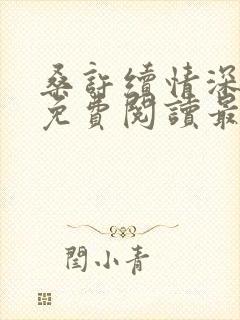 桑許續情深
免費閱讀最
閏小青